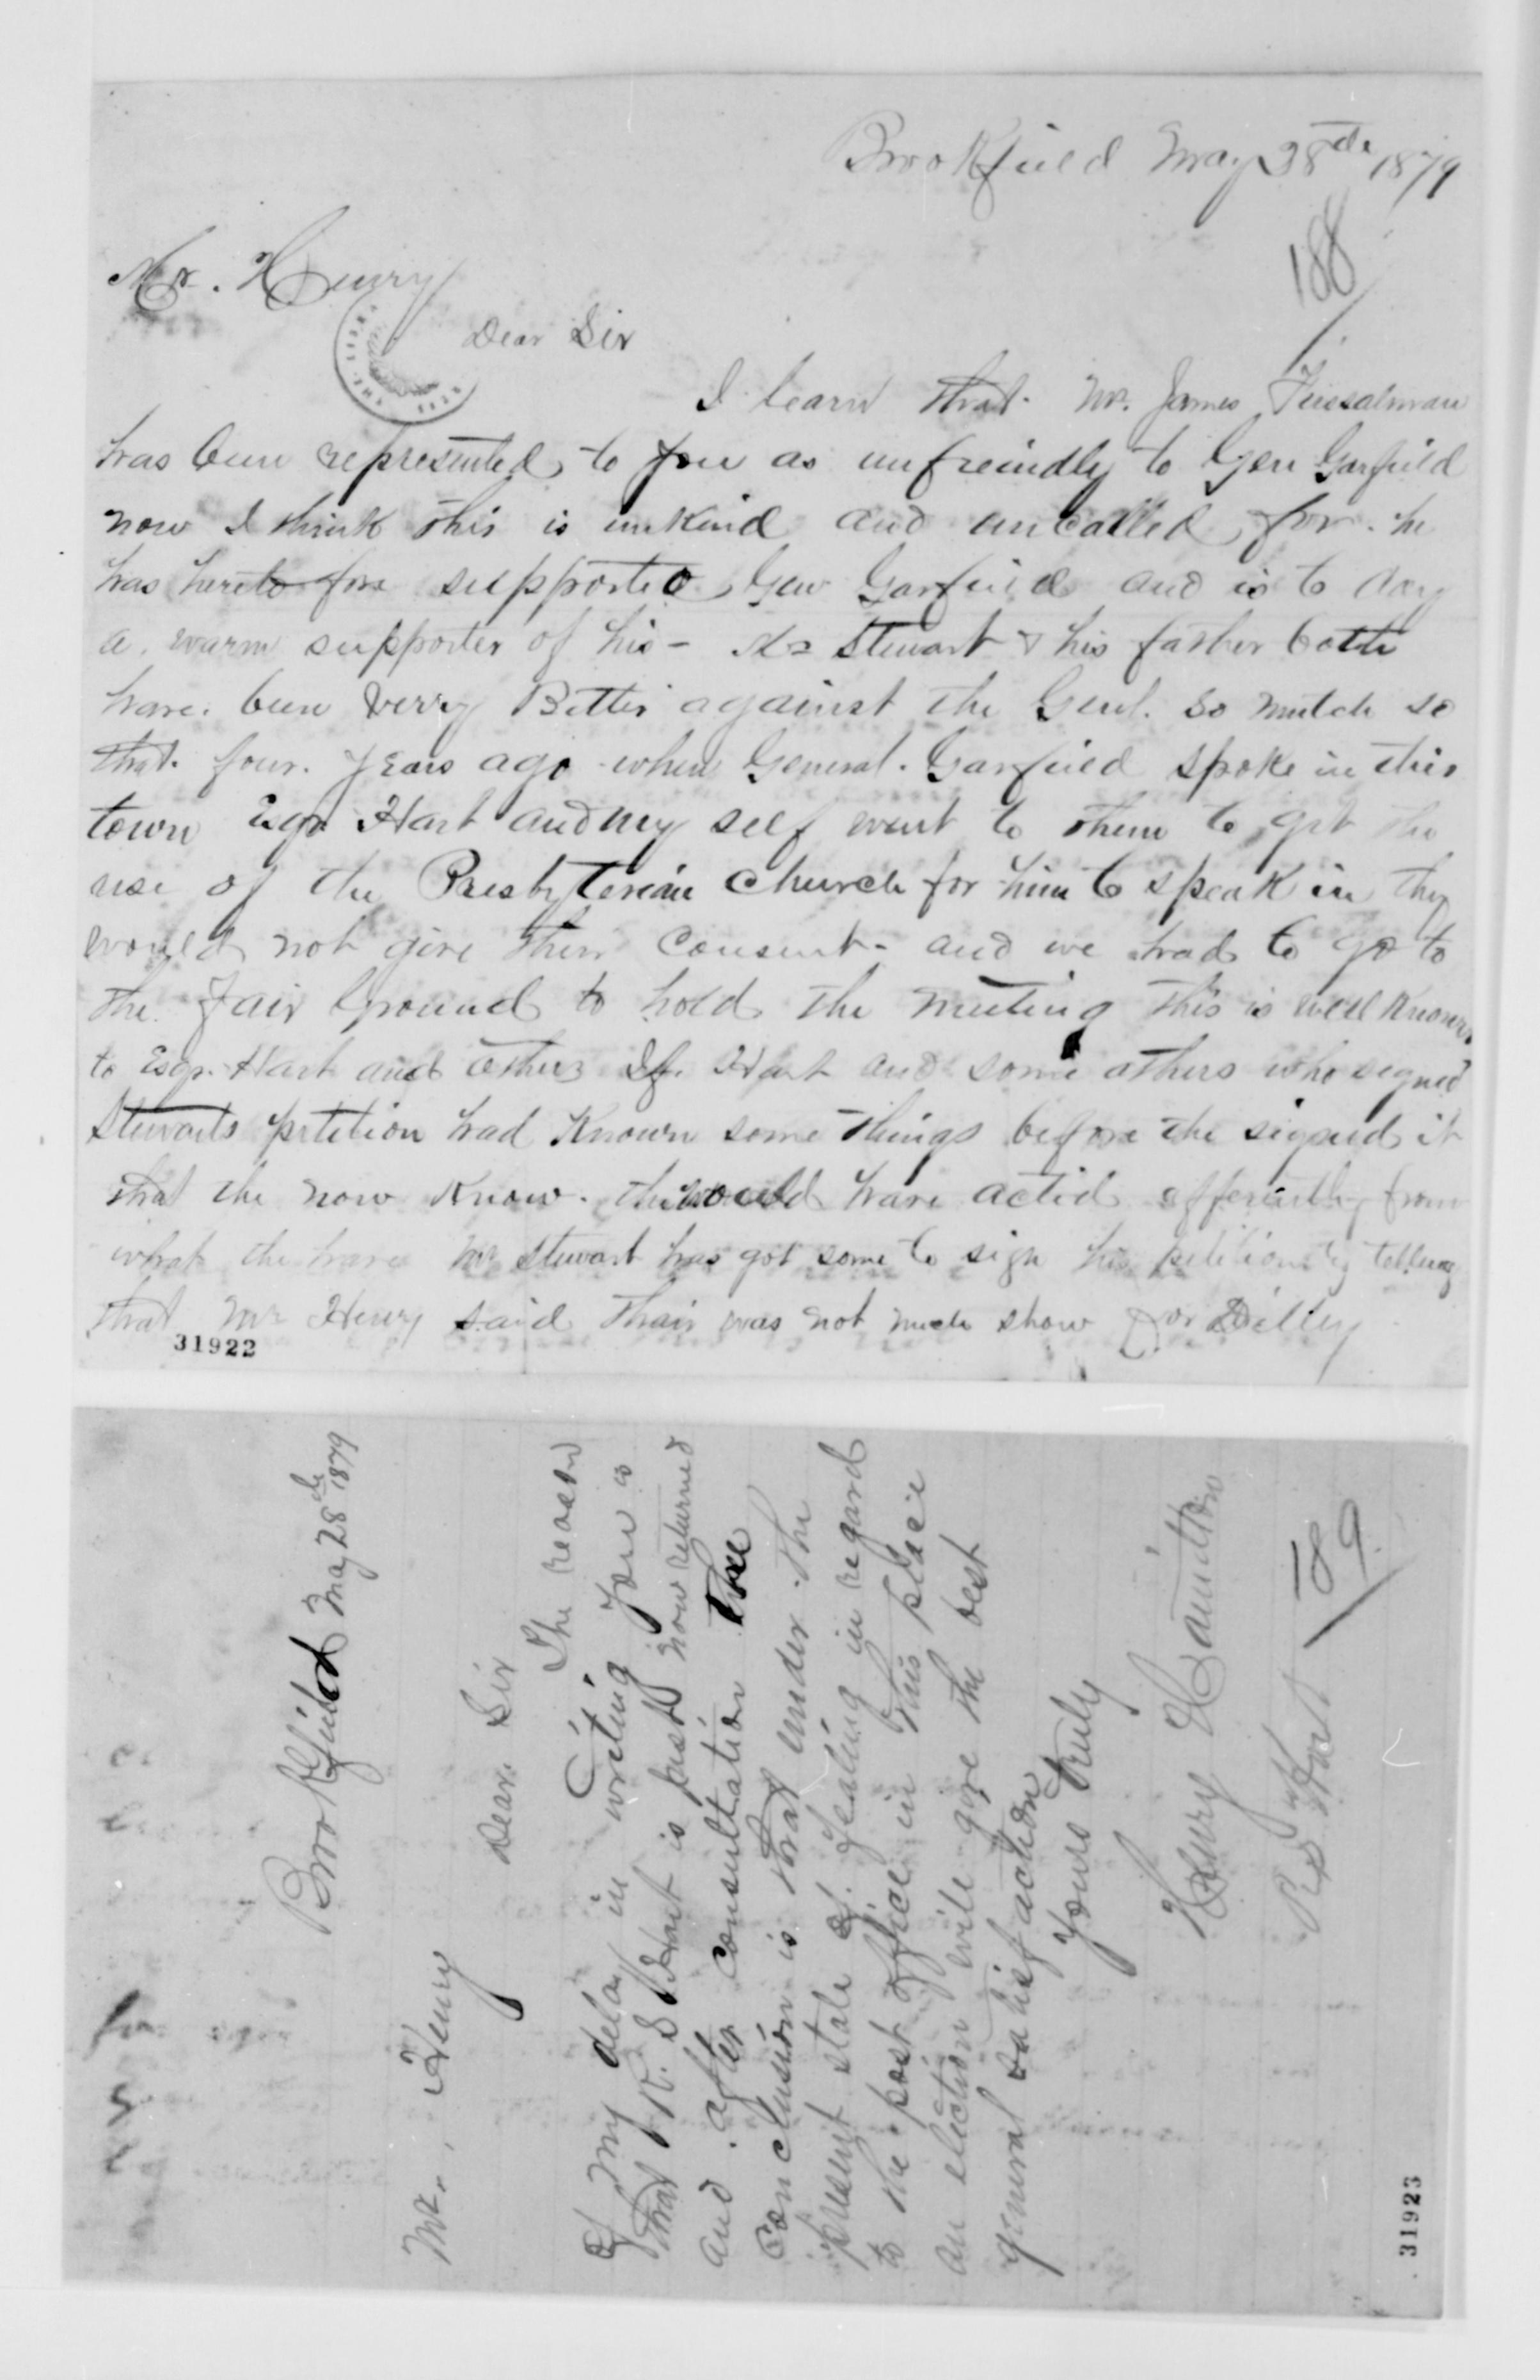 Brookfield May 28th 1879
188
Mr. Henry
Dear Sir
I learn that Mr. James
has been represented to you as unfreindly to Gen Garfield
now I think this is unkind and uncalled for. he
has hereto fore supported Gen Garfield and is to day
a warm supporter of his - Mr Stewart & his father both
have been verry Bitter against the Genl. so mutch so
that four years ago when General Garfield spoke in this
town Esqr Hart and my self went to them to get the
use of the Presbyterian Church for him to speak in they
would not give their consent - and we had to go to
the Fair Ground to hold the meeting This is well known
to Esqr. Hart and others If Hart and some others who signed
Stewarts petition had Known some things before the signed it
that the now Know. the would have acted efferently from
what the have Mr Stewart has got some to sign his petition by telling
that Mr Henry said thair was not much show for Dilley
31922
Brookfield May 28th 1879
Mr. Henry
Dear Sir
The reason
of my delay in writing you is
that R. S Hart is just now returned
and after consultation the
conclusion is that under the
present state of feeling in regard
to the post office in this place
an election will give the best
general satisfaction
Yours truly
Henry Hamilton
R S Hart
189
31923